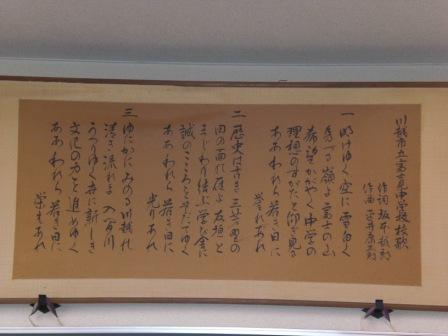 川越市立富士見中学校校歌
作詞 坂本
作曲
一 明けゆく空に雪白く
秀づる嶺よ富士の山
希望かがやく中学の
理想のすがた仰ぎ見る
ああわれら若き日に
誉れあれ
二 歴史は古き三芳野の
田の面に雁よ友垣と
まじわり結ぶ学び舎に
誠のこころそだてゆく
ああわれら若き日に
光りあれ
三 ゆたかにみのる川越や
清き流れよ入間川
うつりゆく世に新しき
文化の力と進めゆく
ああわれら若き日に
栄えあれ